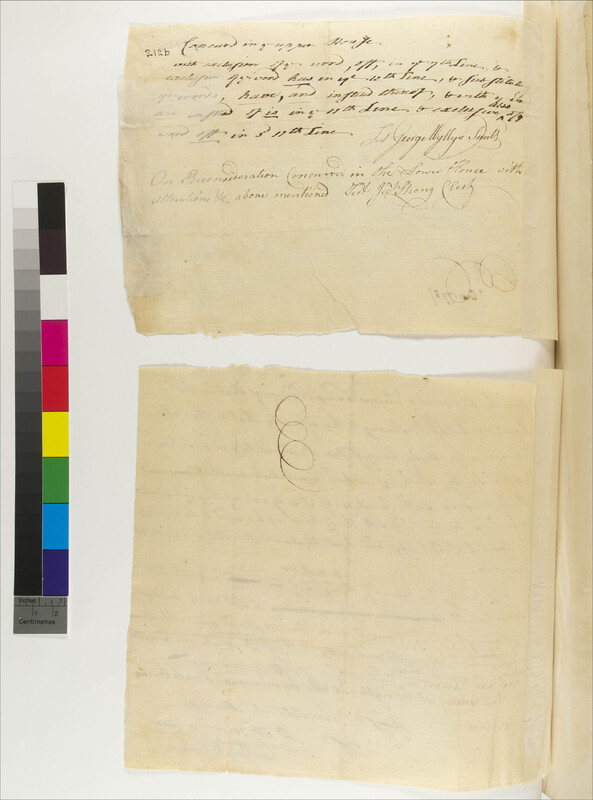 212b
Concurd in ye upper House
with exclusion of ye word, off, in ye 7th Line, &
exclusion of ye word has in ye 10th Line, & Substitute
have, and instead thereof, & with
are instead of is in ye 11th Line & exclusive also of ye
word off in sd 11th Line Test George Wyllys Secrety
On Reconsideration Concurred in the Lower House with
alterations &c above mentioned Test Jed Strong Clerk
Inches 1 2
Centimetres